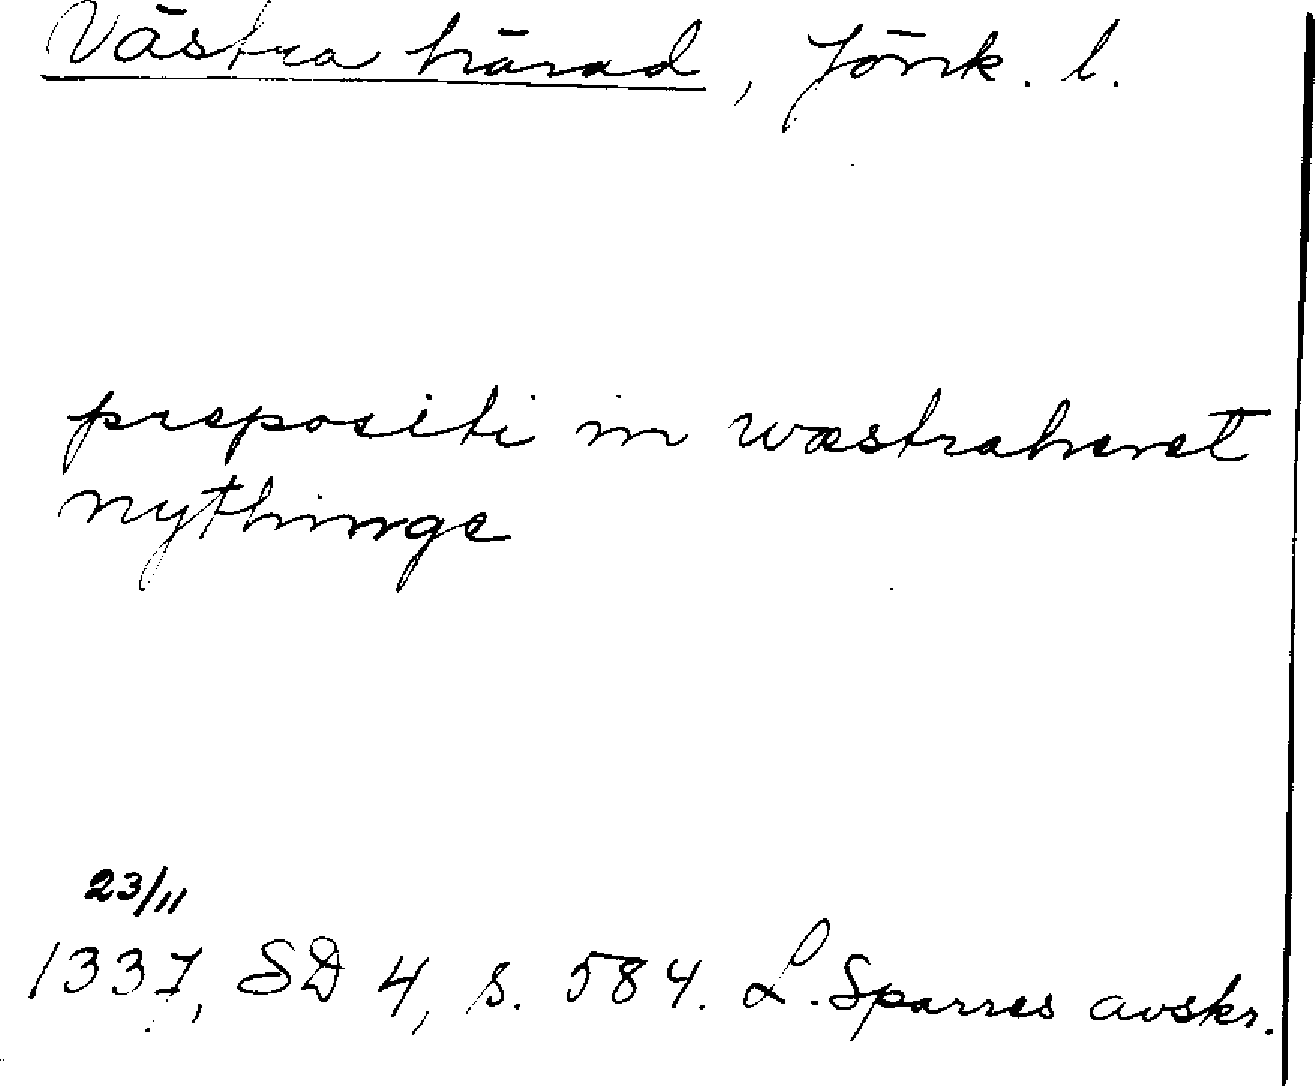 Västra härad, Jönk. l.
prepositi in wæstraheret
nythinge
23/11
1337, SD 4, s. 584. L. Sparres avskr.